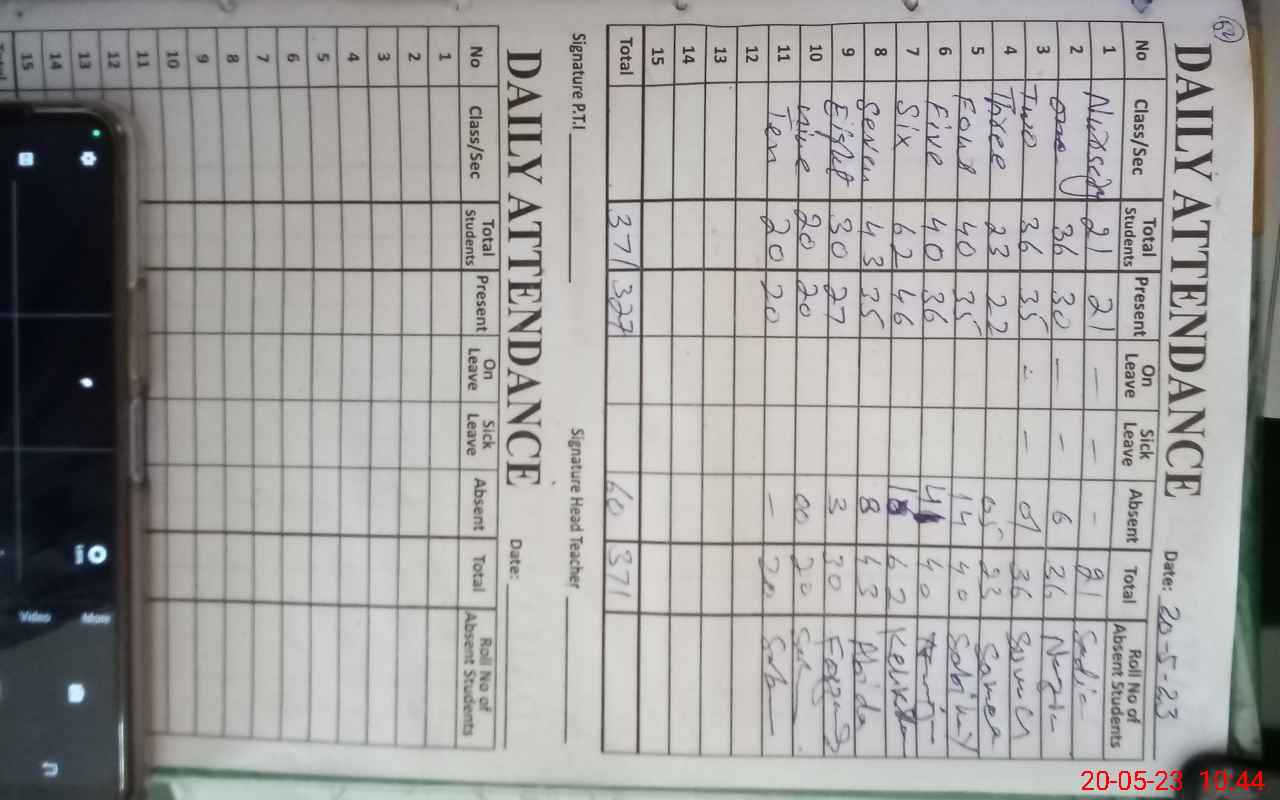 62
DAILY ATTENDANCE Date: 20-5-23
No Class/Sec Total Students Present On Leave Sick Leave Absent Total Roll No of Absent Students
1 Nursery 21 21 - - - 21 Sadia
2 one 36 30 - - 6 36
3 Two 36 35 - - 01 36
4 Three 23 22 23
5 Four 40 35 14 40
6 Five 40 36 4 40
7 Six 62 46 62
8 Seven 43 35 8 43 Abida
9 Eight 30 27 3 30
10 Nine 20 20 00 20
11 Ten 20 20 - 20
12
13
14
15
Total 371 327 60 371
Signature P.T.I Signature Head Teacher
DAILY ATTENDANCE Date:
No Class/Sec Total Students Present On Leave Sick Leave Absent Total Roll No of Absent Students
1
2
3
4
5
6
7
8
9
10
11
12
13
14
15
Total
Video More
20-05-23 10:44